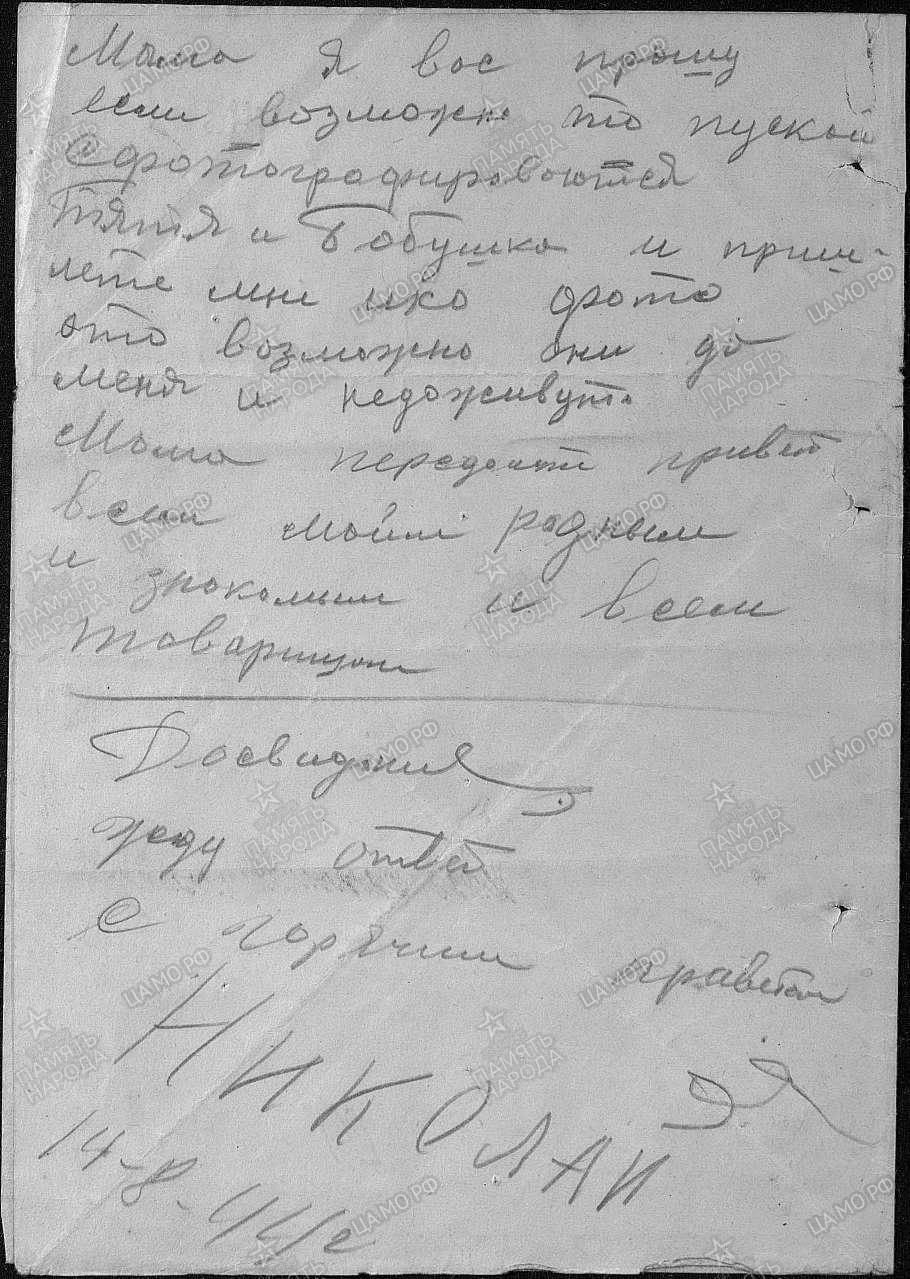 Мама я вас прошу
если возможно то пускай
сфотографироваются
Тятя и Бабушка и приш-
лете мне ихо фото
это возможно они до
меня и недоживут.
Мама передайте привет
всем моим родным
и знакомым и всем
товарищам
Досвидания
жду ответ
С горячим приветом
НИКОЛАЙ
14-8-41 г
ЦАМО.РФ
ПАМЯТЬ НАРОДА